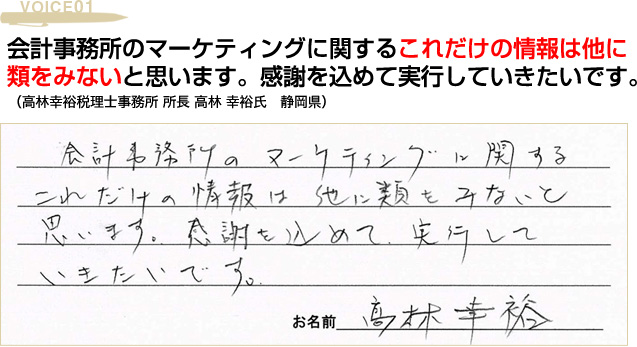 VOICE01
会計事務所のマーケティングに関するこれだけの情報は他に
類をみないと思います。感謝を込めて実行していきたいです。
（高林幸裕税理士事務所 所長 高林 幸裕氏　静岡県）
会計事務所のマーケティングに関する
これだけの情報は他に類をみないと
思います。感謝を込めて、実行して
いきたいです。
お名前 高林幸裕